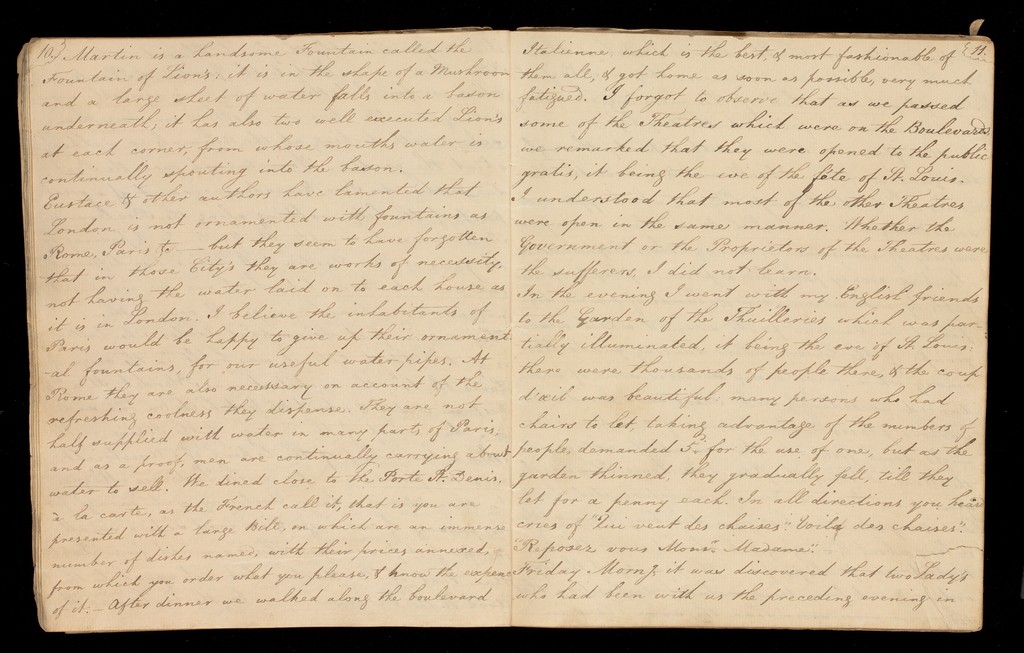 10.) Martin is a handsome Fountain called the
Fountain of Lion's; it is in the shape of a Mushroom
and a large sheet of water falls into a bason
underneath; it has also two well executed Lion's
at each corner, from whose mouths water is
continually spouting into the bason.
Eustace & other authors have lamented that
London is not ornamented with fountains as
Rome, Paris &c — but they seem to have forgotten
that in those City's they are works of necessity,
not having the water laid on to each house as
it is in London. I believe the inhabitants of
Paris would be happy to give up their ornament
al fountains, for our useful water pipes. At
Rome they are also necessary on account of the
refreshing coolness they dispense. They are not
half supplied with water in many parts of Paris,
and as a proof, men are continually carrying about
water to sell. We dined close to the Porte St. Denis,
à la carte, as the French call it, that is you are
presented with a large Bill, on which are an immense
number of dishes named, with their prices annexed,
from which you order what you please, & know the expence
of it. — After dinner we walked along the boulevard
(11.
Italienne, which is the best, & most fashionable of
them all, & got home as soon as possible, very much
fatigued. I forgot to observe that as we passed
some of the Theatres which were on the Boulevards
we remarked that they were opened to the public
gratis, it being the eve of the fête of St. Louis.
I understood that most of the other Theatres
were open in the same manner. Whether the
Government or the Proprietors of the Theatres were
the sufferers, I did not learn.
In the evening I went with my English friends
to the Garden of the Thuilleries which was par-
tially illuminated, it being the eve of St. Louis;
there were thousands of people there, & the coup
d'œil was beautiful; many persons who had
chairs to let, taking advantage of the numbers of
people, demanded for the use of one, but as the
garden thinned, they gradually fell, till they
let for a penny each. In all directions you heard
cries of "Qui veut des chaises". "Voila des chaises".
"Reposez vous Monsr. Madame".
Friday Morng. it was discovered that two Lady's
who had been with us the preceding evening in